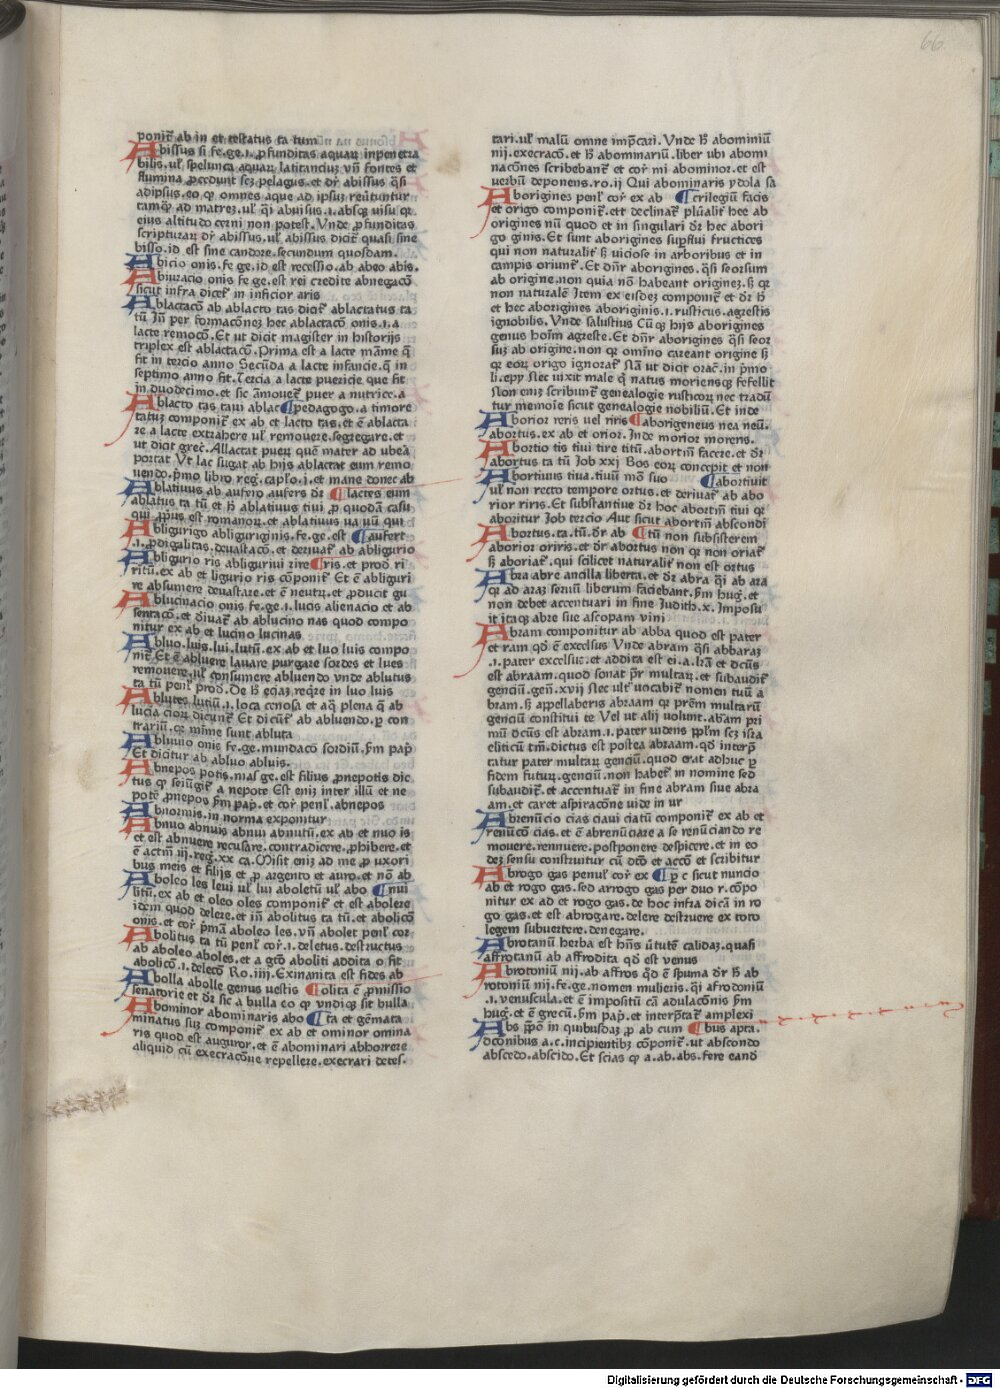 66
ponit᷑ ab in et testatus ta tum
Abissus si fe.ge.i.ꝓfunditas aquaꝝ inpenetra
bilis.ul᷑ spelunca aquaꝝ latitanciuꝫ vn̄ fontes et
flumina ꝓcedunt scꝫ pelagus.et dr̄ abissus q̄si
adipsus.eo ꝙ omnes aque ad ipsuꝫ reu̇tuntur
tamq̄ȝ ad matreꝫ.ul᷑ q̄i abuisus.i.absqꝫ uisu qꝛ
eius altitudo cerni non potest.Vnde ꝓfunditas
scripturaꝝ dr̄ abissus.ul᷑ abissus dicit᷑ quasi sine
bisso.id est sine candore.secundum quosdam.
Abicio onis.fe ge.id est recessio.ab abeo abis.
Abiuracio onis fe ge.est rei credite abnegacō
sicut infra dicet᷑ in inficior aris
Ablactacō ab ablacto tas dicit᷑ ablactatus ta
tū Jn̄ per formacōneꝫ hec ablactacō onis.i.a
lacte remocō.Et ut dicit magister in historijs
triplex est ablactacō.Prima est a lacte mat̄ne q̄
fit in tercio anno Secūda a lacte infancie.q̄ in
septimo anno fit.Tercia a lacte puericie que fit
in duodecimo.et sic āmouet᷑ puer a nutrice.a
Ablacto tas taui ablac ¶pedagogo.a timore
tatuꝫ componit᷑ ex ab et lacto tas.et ē ablacta
re a lacte extrahere ul᷑ remouere.segregare.et
ut dicit grec᷑.Allactat pueꝝ quē mater ad ubera
portat Vt lac sugat ab hijs ablactat eum remo
uendo.p̄mo libro reg᷑.cap᷑lo.j.et mane donec ab
Ablatiuus ab aufero aufers dr̄ ¶lactes eum
ablatus ta tū et h̄ ablatiuus tiui ꝑ quodā casu
qui ꝓp̄us est romanoꝝ.et ablatiuus ua uū qui
Abligurigo abliguriginis.fe.ge.est ¶aufert
.i.ꝓdigalitas.deuastacō.et deriuat᷑ ab abligurio
Abligurio ris abliguriui rire ¶ris.et prod.ri
ritū.ex ab et ligurio ris cōponit᷑ Et ē abliguri
re absumere deuastare.et ē neutꝝ.et ꝓducit gu
Ablucinacio onis fe.ge.i.lucis alienacio et ab
sentacō.et diuat᷑ ab ablucino nas quod compo
nitur ex ab et lucino lucinas
Abluo.luis.lui.lutū.ex ab et luo luis compo
nit᷑ Et ē abluere lauare purgare sordes et lues
remouere.ul᷑ consumere abluendo vnde ablutus
ta tū penl᷑ prod.De h̄ eciaꝫ reqͥre in luo luis
Ablutes lutiū.i.loca cenosa et aq̄ plena q̄ ab
lucia cioꝝ dicunt᷑ Et dicūt᷑ ab abluendo.ꝑ con
trariū.qꝛ mīme sunt abluta
Abluuio onis fe.ge.mundacō sordiū.ẜm pap̄
Et dicitur ab abluo abluis.
Abnepos potis.mas ge.est filius ꝓnepotis dic
tus ꝙ seiūgit᷑ a nepote Est eniꝫ inter illū et ne
potē ꝓnepos ẜm pap̄.et cor᷑ penl᷑.abnepos
Abnormis.in norma exponitur
Abnuo abnuis abnui abnutū.ex ab et nuo is
et est abnuere recusare.contradicere.ꝓhibere.et
ē actm̄ iij.reg᷑.xx ca.Misit eniꝫ ad me ꝓ uxori
bus meis et filijs et ꝓ argento et auro.et nō ab
Aboleo les leui ul᷑ lui aboletū ul᷑ abo ¶nui
litū.ex ab et oleo oles componit᷑ et est abolere
idem quod delere.et in̄ abolitus ta tū.et abolicō
onis.et cor᷑ p̄mā aboleo les.vn̄ abolet penl᷑ cor
Abolitus ta tū penl᷑ cor᷑.i.deletus.destructus
ab aboleo aboles.et a gt̄o aboliti addita o fit
abolicō.i.delecō Ro.iiij.Exinanita est fides ab
Abolla abolle genus uestis ¶olita ē ꝓmissio
senatorie et dr̄ sic a bulla eo ꝙ vndiqꝫ sit bulla
Abominor abominaris abo ¶ta et gēmata
minatus suꝫ componit᷑ ex ab et ominor omina
ris quod est auguror.et ē abominari abhorrere
aliquid cū execracōne repellere.execrari detes.
tari.ul᷑ malū omne imp̄cari.Vnde h̄ abominiū
nij.execracō.et h̄ abominariū.liber ubi abomi
nacōnes scribebant᷑ et cor᷑ mi abominor.et est
uerbū deponens.ro.ij Qui abominaris ydola sa
Aborigines penl᷑ cor᷑ ex ab ¶crilegiū facis
et origo componit᷑.ett declinat᷑ pl̄ualit᷑ hee ab
origines nū quod et in singulari dr̄ hec abori
go ginis.Et sunt aborigines suꝑflui fructices
qui non naturalit᷑ sꝫ uiciose in arboribus et in
campis oriunt᷑.Et dn̄r aborigines.q̄si seorsum
ab origine.non quia nō habeant origineꝫ.sꝫ qꝛ
non naturalē Jtem ex eisdeꝫ componit᷑ et dr̄ h̄
et hec aborigines aboriginis.i.rusticus.agrestis
ignobilis.Vnde salustius Cū qꝫ hijs aborigines
genus hoīm agreste.Et dn̄r aborigines q̄si seor
suꝫ ab origine.non qꝛ om̄ino careant origine sꝫ
qꝛ eoꝝ origo ignorat᷑ Nā ut dicit orac̄.in p̄mo
li.epy Nec uixit male q̄ natus moriensqꝫ fefellit
Non eniꝫ scribunt᷑ genealogie rusticoꝝ nec tradū
tur memoīe sicut genealogie nobiliū.Et inde
Aborior reris uel riris ¶aborigeneus nea neū.
abortus.ex ab et orior.Inde morior morens.
Abortio tis tiui tire titū.abortm̄ facere.et dr̄
abortus ta tū Job xxj Bos eoꝝ concepit et non
Abortiuus tiua.tiuū mō suo ¶abortiuit
ul᷑ non recto tempore ortus.et deriuat᷑ ab abo
rior riris.Et substantiue dr̄ hoc abortm̄ tiui qꝛ
aboritur Job tercio Aut sicut abortm̄ abscondi
Abortus.ta.tū.dr̄ ab ¶tū non subsisterem
aborior oriris.et dr̄ abortus non qꝛ non oriat᷑
sꝫ aboriat᷑.qui scilicet naturalit᷑ non est ortus
Abra abre ancilla liberta.et dr̄ abra q̄i ab ara
qꝛ ad araꝫ seruū liberum faciebant.ẜm hug᷑.et
non debet accentuari in fine Judith.x.Imposu
it itaqꝫ abre sue ascopam vini
Abram componitur ab abba quod est pater
et ram qd̄ ē excelsus Vnde abram q̄si abbaraꝫ
.i.pater excelsus.et addita est ei.a.lr̄a et dc̄us
est abraam.quod sonat pr̄ multaꝝ.et subaudit᷑
genciū.gen̄.xvij Nec ult᷑ uocabit᷑ nomen tuū a
bram.sꝫ appellaberis abraam qꝛ pr̄em multarū
genciū constitui te Vel ut alij uolunt.abram pri
mū dc̄us est abram.i.pater uidens ppl̄m scꝫ isra
eliticū tm̄.dictus est postea abraam.qd̄ interp̄
tatur pater multaꝝ genciū.quod erat adhuc ꝑ
fidem futuꝝ.genciū.non habet᷑ in nomine sed
subaudit᷑.et accentuat᷑ in fine abram siue abra
am.et caret aspiracōne uide in ur
Abrenūcio cias ciaui ciatū componit᷑ ex ab et
renūcō cias.et ē abrenūciare a se renūciando re
mouere.rennuere.postponere despicere.et in eo
deꝫ sensu construitur cū dt̄o et accō et scribitur
Abrogo gas penul᷑ cor᷑ ex ¶ꝑ c sicut nuncio
ab et rogo gas.sed arrogo gas per duo r.cōpo
nitur ex ad et rogo gas.de hoc infra dicā in ro
go gas.et est abrogare.delere destruere ex toto
legem subuertere.denegare.
Abrotanū herba est hn̄s u̇tutē calidaꝫ.quasi
affrotanū ab affrodita qd̄ est venus
Abrotoniū nij.ab affros qd̄ ē spuma dr̄ h̄ ab
rotoniū nij.fe.ge.nomen mulieris.q̄i afrodoniū
.i.venuscula.et ē impositū cā adulacōnis ẜm
hug᷑.et ē grecū.ẜm pap̄.et interp̄tat᷑ amplexi
Abs p̄pō in quibusdaꝫ ꝓ ab cum ¶bus apta.
dcōnibus a.c.incipientibꝫ cōponit᷑.ut abscondo
abscedo.abscido.Et scias ꝙ a.ab.abs.fere eand
Digitalisierung gefördert durch die Deutsche Forschungsgemeinschaft - DFG